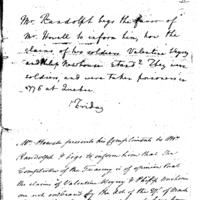 Mr. Randolph begs the favor of
Mr. Howell to inform him, how the
claims of two soldiers Valentine
and Philip stand? They were
soldiers, and were taken prisoners in
1776 at Quebec.
Friday
Mr. Howell presents his Compliments to Mr.
Randolph & begs to inform him that The
Comptroller of the Treasury is of opinion that
the claims of Valentine & Philip
are not embraced by the Act of the